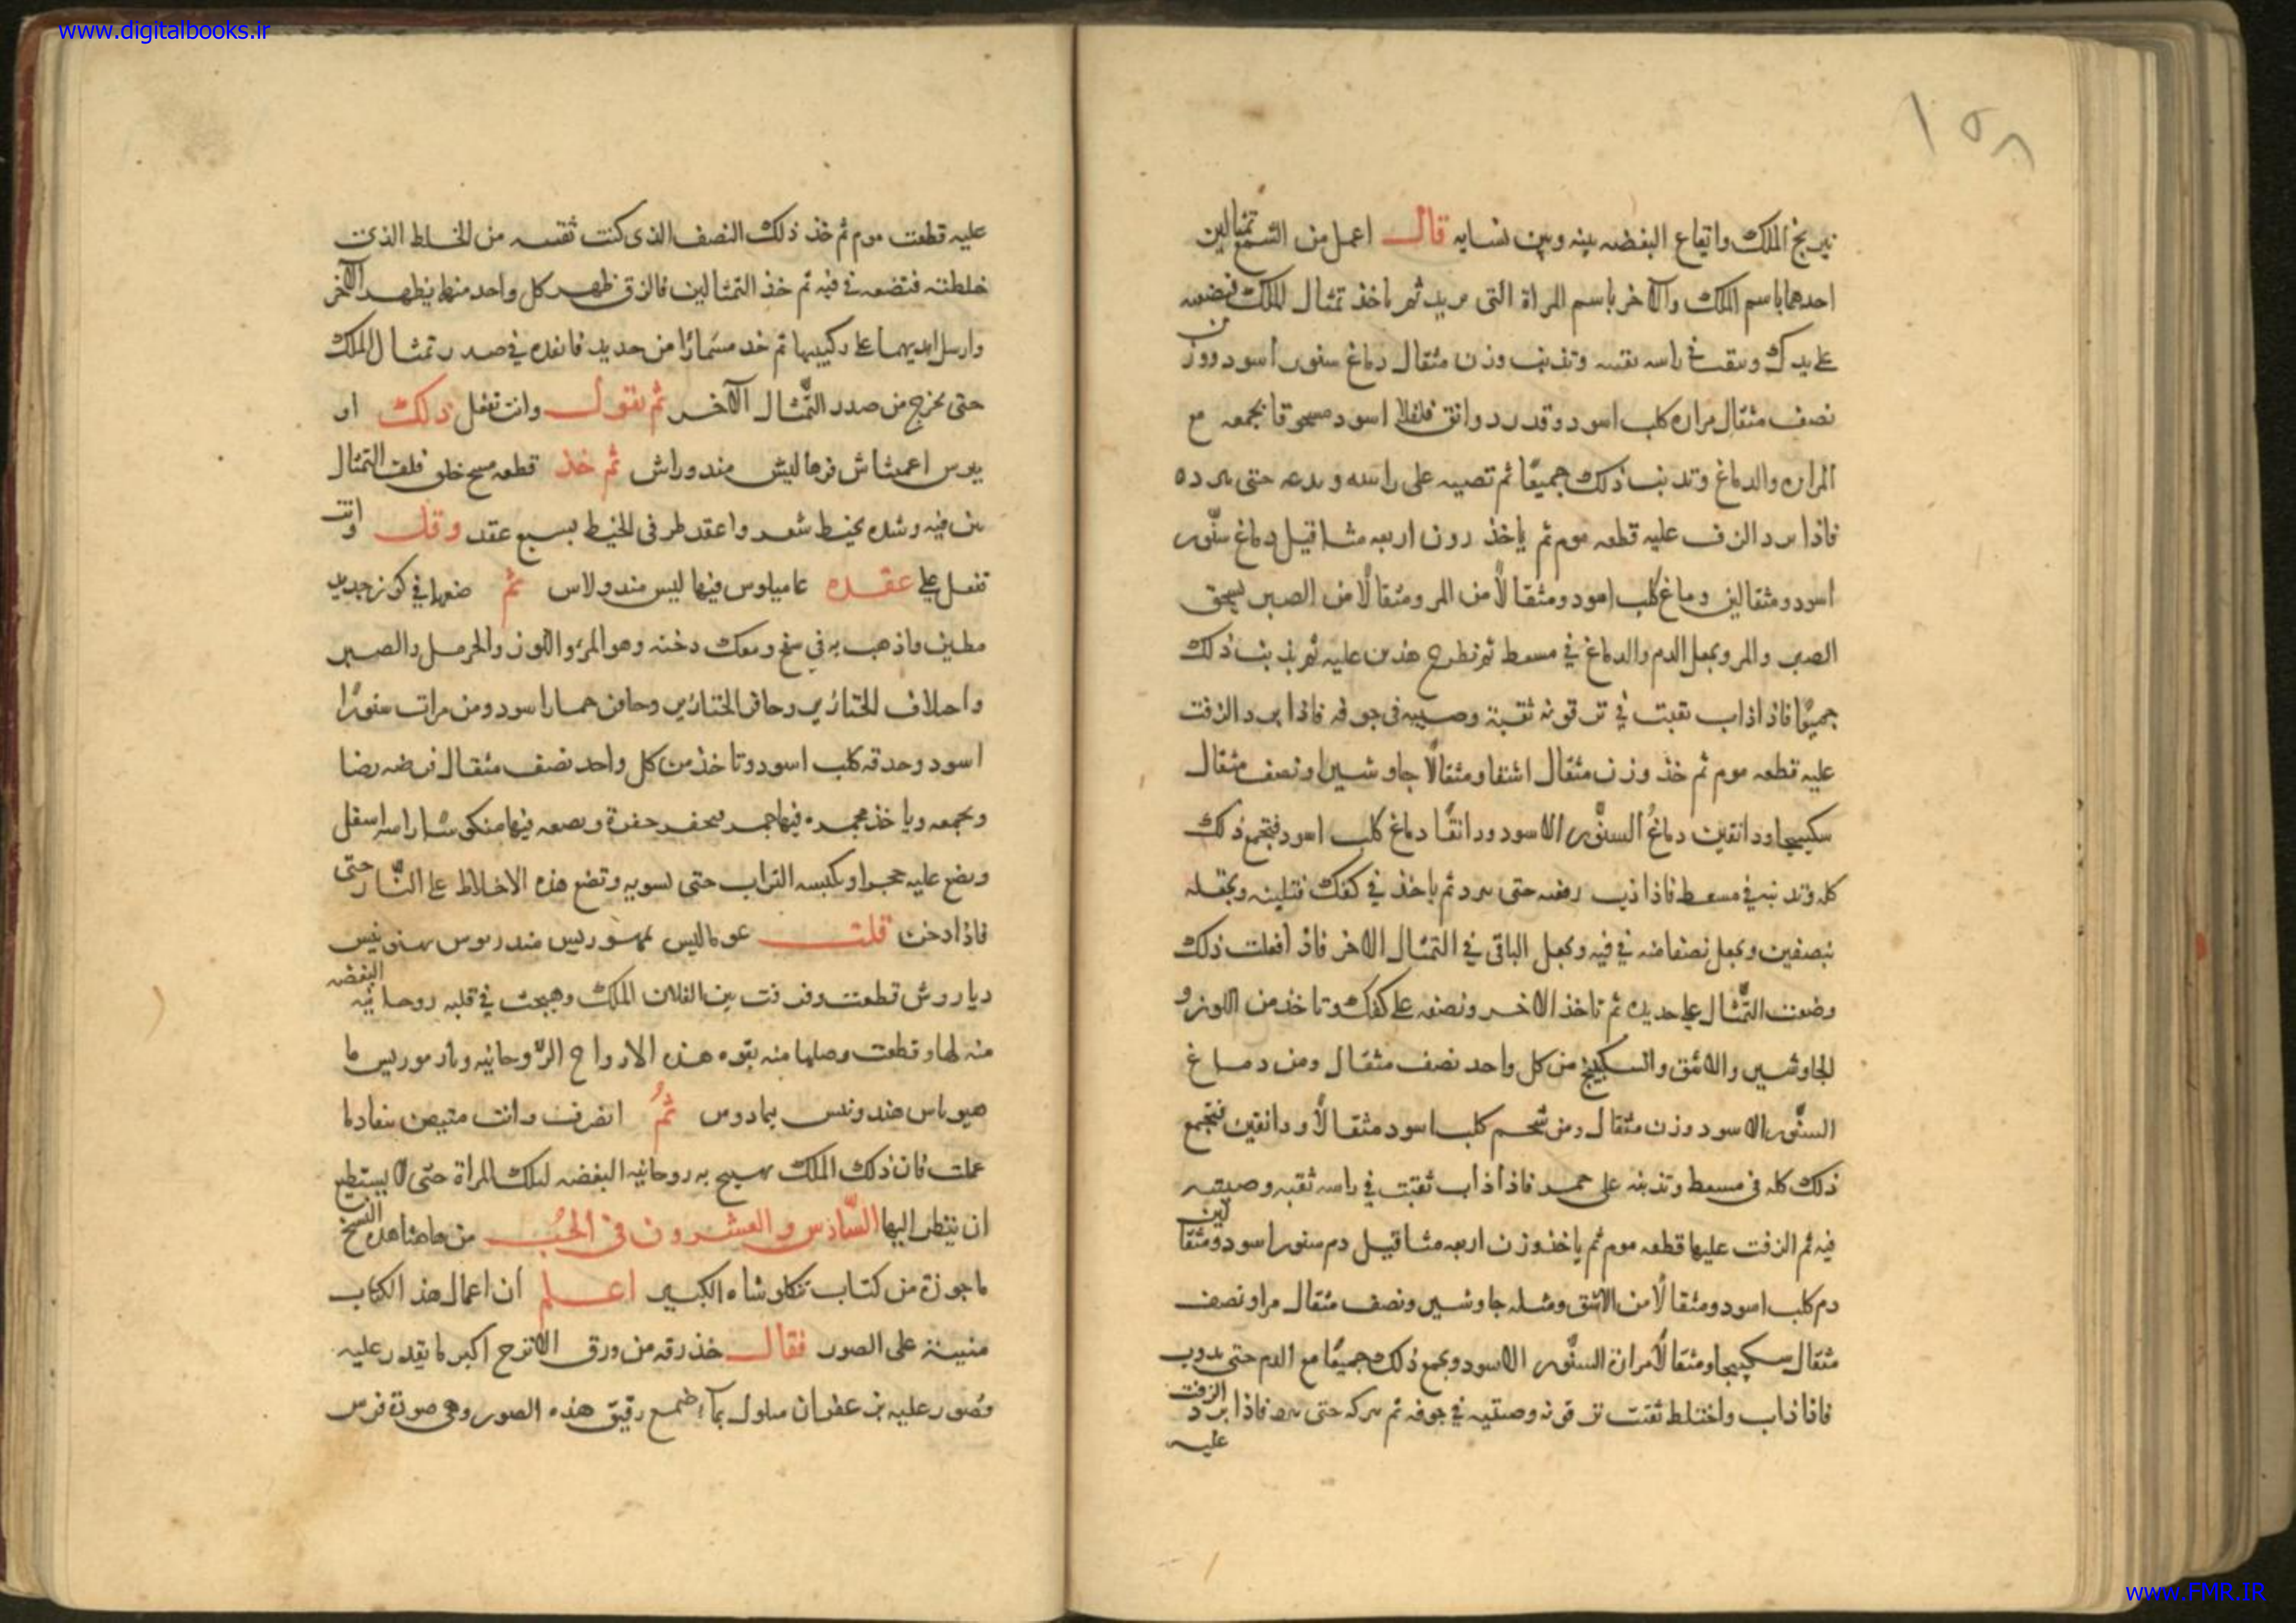 www.digitalbooks.ir
١٥٨
نيرنج الملك وايقاع البغضه بينه وبين نسايه قال اعمل من الشمع تمثالين
احدهما باسم الملك والآخر باسم المراة التى تريد ثم تاخذ تمثال الملك فتضعه
على يدك وتثقب في راسه ثقبه وتذيب وزن مثقال دماغ سنور اسود ووزن
نصف مثقال مراره كلب اسود وقدر دوانق فلفلا اسود مسحوقا تجمعه مع
المراره والدماغ وتذيب ذلك جميعًا ثم تصبه على راسه وتدعه حتى يبرده
فاذا برد الزف عليه قطعه موم ثم ياخذ وزن اربعه مثاقيل دماغ سنّور
اسود ومثقالين دماغ كلب اسود ومثقالًا من المر ومثقالًا من الصبر يسحق
الصبر والمر ويجعل الدم والدماغ في مسعط ثم تطرح هذين عليه ثم يذيب ذلك
جميعًا فاذا ذاب ثقبت في ترقوته ثقبة وصببه فى جوفه فاذا برد الزفت
عليه قطعه موم ثم خذ وزن مثقال اشقا ومثقالًا جاوشيرا ونصف مثقال
سكبينجا ودانقين دماغُ السنّور الاسود ودانقًا دماغ كلب اسود فتجمع ذلك
كله وتذيبه في مسعط فاذا ذيب رفعه حتى يبرد ثم ياخذ في كفك فتلينه ويجعله
بنصفين ويجعل نصفا منه في فيه ويجعل الباقى في التمثال الاخر فاذا فعلت ذلك
وضعت التمّثال على حديده ثم تاخذ الاخر وتضعه على كفك وتاخذ من اللوز و
الجاوشير والاشق والسكبينج من كل واحد نصف مثقال ومن دماغ
السنّور الاسود وزن مثقال ومن شحم كلب اسود مثقالًا ودانقين فتجمع
ذلك كله فى مسعط وتذيبه على جمر فاذا ذاب ثقبت في راسه ثقبه وصببته
فيه ثم الزفت عليها قطعه موم ثم ياخذ وزن اربعه مثاقيل دم سنور اسود ومثقالين
دم كلب اسود ومثقالًا من الاشق ومثله جاوشير ونصف مثقال مرا ونصف
مثقال سكبينجا ومثقالًا مرارة السنّور الاسود وتجمع ذلك جميعًا مع الدم حتى يذوب
فاذا ذاب واختلط ثقبت ترقوته وصببته في جوفه ثم تتركه حتى يبرد فاذا برد الزفت
عليه
عليه قطعت موم ثم خذ ذلك النصف الذى كنت تقسمه من الخلط الذى
خلطته فتضعه في فيه ثم خذ التمثالين فالزق ظهر كل واحد منهما بظهر الآخر
وارسل ايديهما على ركبيهما ثم خذ مسمارًا من حديد فانفذه في صدر تمثال الملك
حتى يخرج من صدر التمّثال الآخر ثم تقول وانت تفعل ذلك او
يدس اعمشاش فرهاليش مندوراش ثم خذ قطعه مسح خلق فلف التمثال
فيه وشده بخيط شعر واعقد طرفى الخيط بسبع عقد وقل وانت
تفعل على عقده عاميلوس فيها ليس مندولاس ثم ضعها في كوز جديد
مطين واذهب به في سخ ومعك دخنه وهو المر واللوز والحرمل والصبر
واحلاف الخنازير وحاف الخنازير وحافر حمار اسود ومن مرات سنورًا
اسود وحدقه كلب اسود وتاخذ من كل واحد نصف مثقال فرضه رضا
وتجمعه وياخذ مجمره فيها جمر فتحفر حفرة وتضعه فيها منكوسًا راسه اسفل
وتضع عليه حجرا وتكبسه التراب حتى تسويه وتضع هذه الاخلاط على النّار حتى
فاذا دخن قلت عوماليس بهوريس مندريوس
دياروش قطعت وفرقت بين الفلان الملك وهيجت في قلبه روحانيه البغضه
منه لها وقطعت وصلها منه بقوه هذه الارواح الرّوحانيه وبادموريس ما
هيوراس هندونيس بمادوس ثمُ انصرف وانت متيقن بنفاد ما
عملت فان ذلك الملك يهيج به روحانيه البغضه لتلك المراة حتّى لا يستطيع
ان ينظر اليها السّادس والعشرون فى الحُب من هاهنا هذه النسخ
ماخوذة من كتاب تنكلوشاه الكبير اعلم ان اعمال هذا الكتاب
مبنية على الصور فقال خذ رقه من ورق الاترج اكبر ما يقدر عليه
وصور عليه بزعفران مبلول بمآء ضمغ رقيق هذه الصور وهى صورة فرس
www.FMR.IR